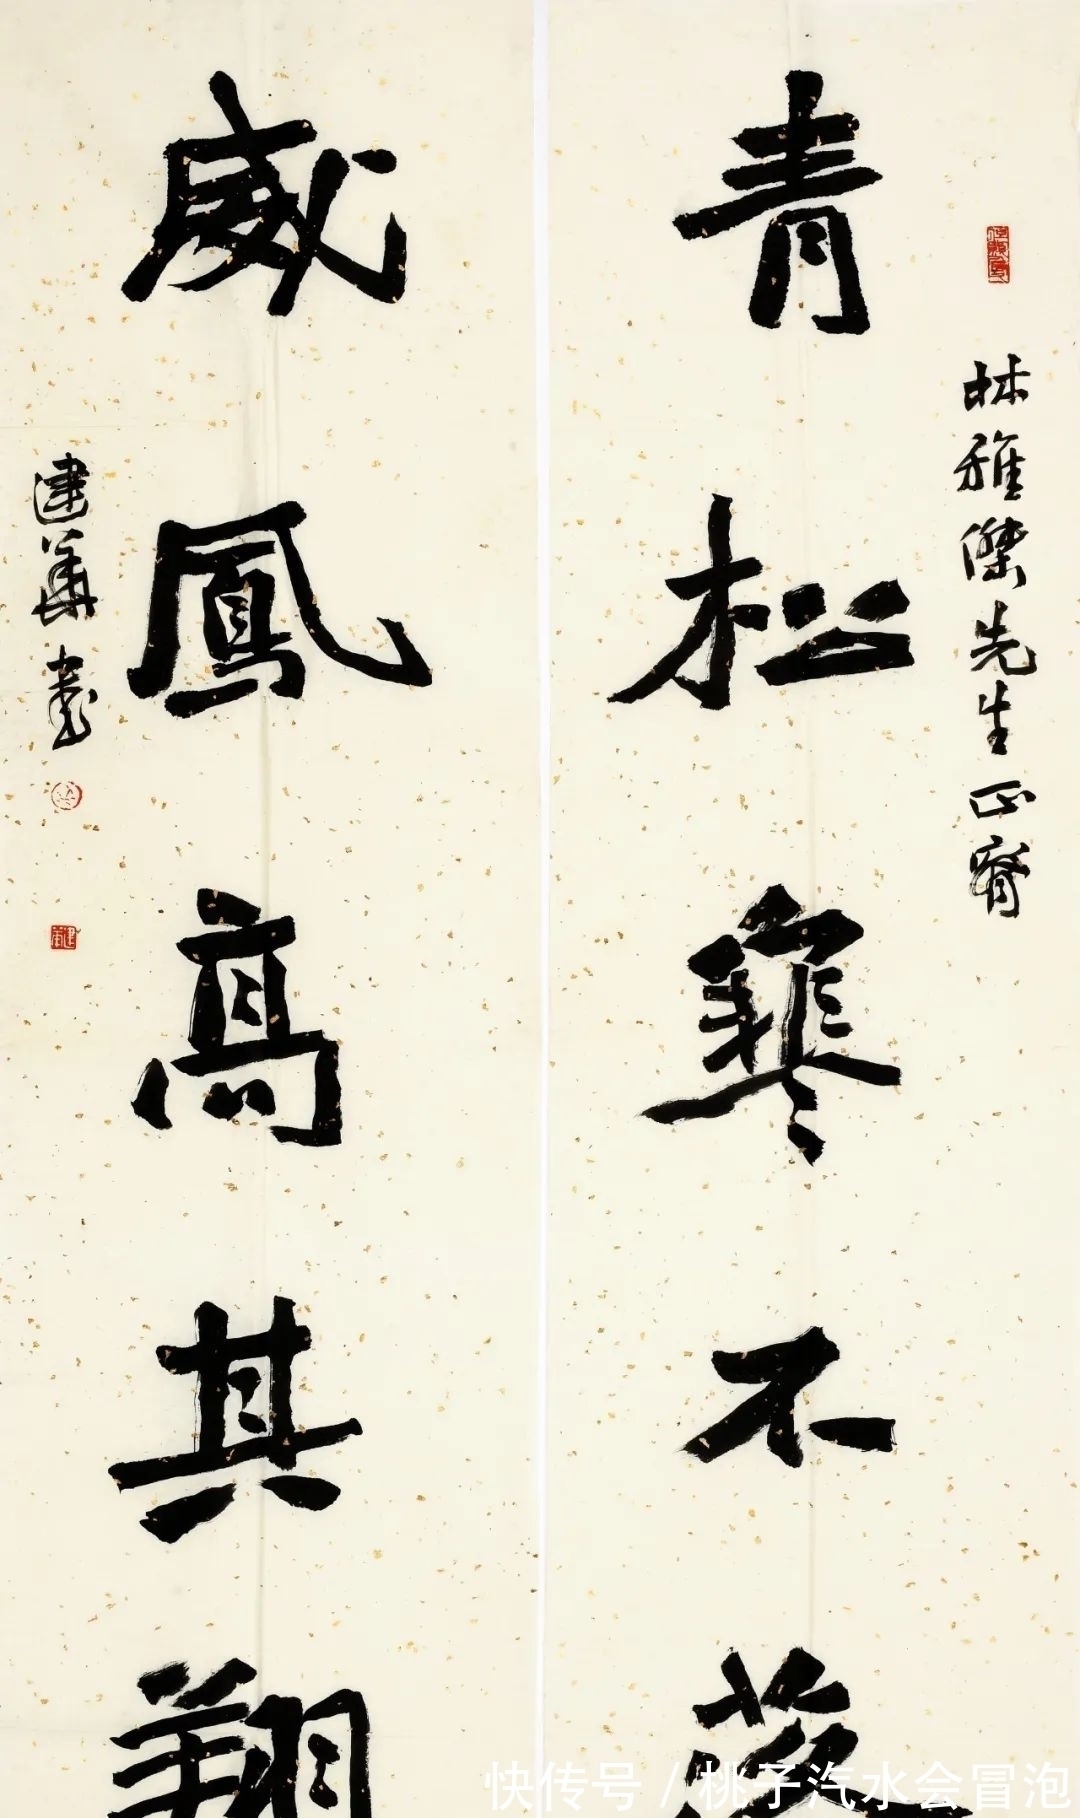 林雅傑先生正腕
青松寒不落
威鳳高其翔
建華書
快传号 / 桃子汽水会冒泡